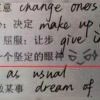 意 change ones
：决定 make up
屈服：让步 give i
一个坚定的眼神
as usual
某事 dream of